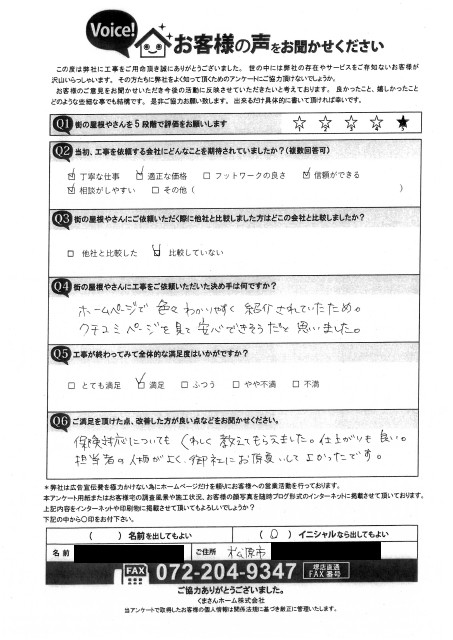 Voice!
お客様の声をお聞かせください
この度は弊社に工事をご用命頂き誠にありがとうございました。 世の中には弊社の存在やサービスをご存知ないお客様が
沢山いらっしゃいます。 その方たちに弊社をよく知って頂くためのアンケートにご協力頂けないでしょうか。
お客様のご意見をお聞かせいただき今後の活動に反映させていただきたいと考えております。 良かったこと、嬉しかったこと
どのような些細な事でも結構です。 是非ご協力お願い致します。 出来るだけ具体的に書いて頂ければ幸いです。
Q1 街の屋根やさんを5段階で評価をお願いします ☆ ☆ ☆ ☆ ★
Q2 当初、工事を依頼する会社にどんなことを期待されていましたか?(複数回答可)
☑ 丁寧な仕事 ☑ 適正な価格 □ フットワークの良さ ☑ 信頼ができる
☑ 相談がしやすい □ その他 ( )
Q3 街の屋根やさんにご依頼いただく際に他社と比較しました方はどこの会社と比較しましたか?
□ 他社と比較した ☑ 比較していない
Q4 街の屋根やさんに工事をご依頼いただいた決め手は何ですか?
ホームページで色々わかりやすく紹介されていたため。
クチコミページを見て安心できそうだと思いました。
Q5 工事が終わってみて全体的な満足度はいかがですか?
□ とても満足 ☑ 満足 □ ふつう □ やや不満 □ 不満
Q6 ご満足を頂けた点、改善した方が良い点などをお聞かせください。
保険対応についてもくわしく教えてもらえました。仕上がりも良い。
担当者の人柄がよく、御社にお願いしてよかったです。
*弊社は広告宣伝費を極力かけない為にホームページだけを頼りにお客様への営業活動を行っております。
本アンケート用紙またはお客様宅の調査風景や施工状況、お客様の顔写真を随時ブログ形式のインターネットに掲載させて頂いております。
上記内容をインターネットや印刷物に掲載させて頂いてもよろしいでしょうか?
下記の中から〇印をお付下さい。
( ) 名前を出してもよい ( 〇 ) イニシャルなら出してもよい
名前 ご住所 松原市
FAX 072-204-9347 堺店直通 FAX番号
ご協力ありがとうございました。
くまさんホーム株式会社
当アンケートで取得したお客様の個人情報は関係法規に基づき厳正に管理いたします。